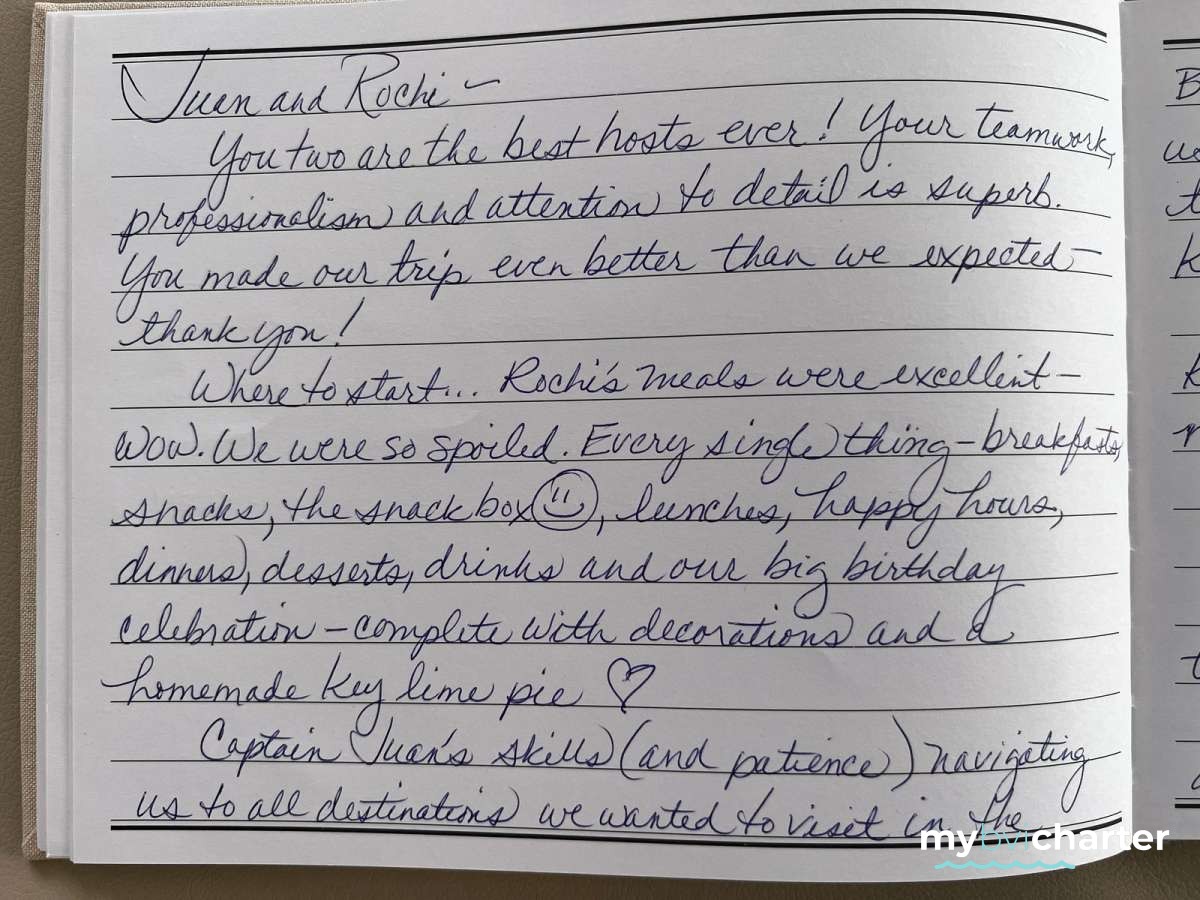 Juan and Rochi –
You two are the best hosts ever! Your teamwork,
professionalism and attention to detail is superb.
You made our trip even better than we expected –
thank you!
Where to start... Rochi's meals were excellent –
wow. We were so spoiled. Every single thing – breakfasts,
snacks, the snack box ☺, lunches, happy hours,
dinners, desserts, drinks and our big birthday
celebration – complete with decorations and a
homemade key lime pie ♡
Captain Juan's skills (and patience) navigating
us to all destinations we wanted to visit in the
mybvicharter